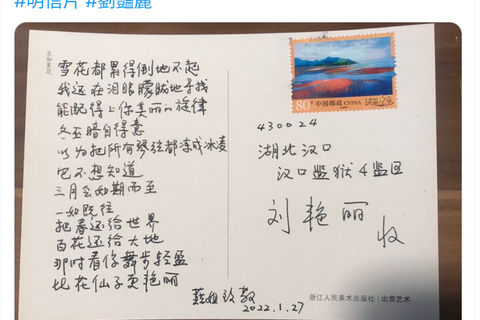 #明信片 #劉豔麗
雪花都累得倒地不起
我还在泪眼朦胧地寻找
能配得上你美丽的旋律
冬天暗自得意
以为把所有琴弦都冻成冰凌
它不想知道
三月会如期而至
一如既往
把春还给世界
百花还给大地
那时看你舞步轻盈
比花仙子更艳丽
致敬
2022.1.27
80分
中国邮政 CHINA
430024
湖北汉口
汉口监狱4监区
刘艳丽
收
浙江人民美术出版社 | 出类艺术